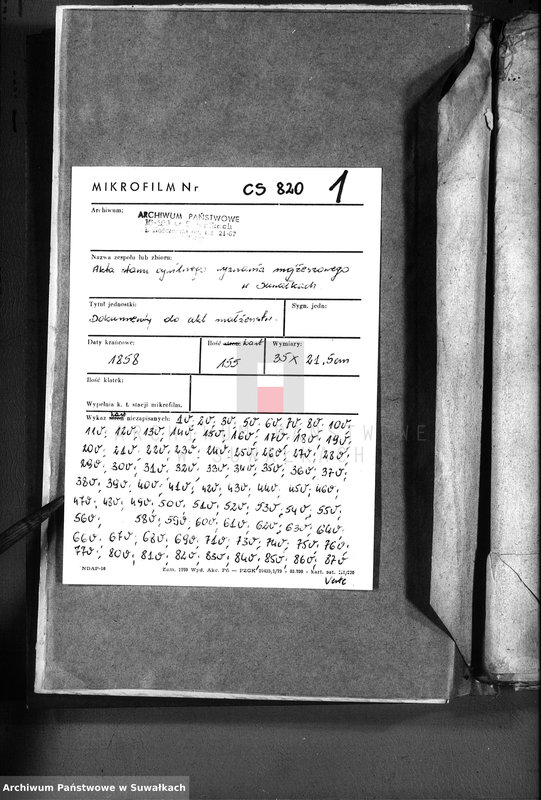 MIKROFILM Nr CS 820 1
Archiwum:
ARCHIWUM PAŃSTWOWE
Nazwa zespołu lub zbioru:
Akta stanu cywilnego wyznania mojżeszowego
w Suwałkach
Tytuł jednostki:
Sygn. jedn:
Dokumenty do akt małżeństw.
Daty krańcowe:
Ilość stron: kart
Wymiary:
1858
155
35 x 21,5 cm
Ilość klatek:
Wypełnia k. t. stacji mikrofilm.
Wykaz stron kart niezapisanych: 1v; 2v; 3v; 5v; 6v; 7v; 8v; 10v;
11v; 12v; 13v; 14v; 15v; 16v; 17v; 18v; 19v;
20v; 21v; 22v; 23v; 24v; 25v; 26v; 27v; 28v;
29v; 30v; 31v; 32v; 33v; 34v; 35v; 36v; 37v;
38v; 39v; 40v; 41v; 42v; 43v; 44v; 45v; 46v;
47v; 48v; 49v; 50v; 51v; 52v; 53v; 54v; 55v;
56v; 58v; 59v; 60v; 61v; 62v; 63v; 64v;
66v; 67v; 68v; 69v; 71v; 73v; 74v; 75v; 76v;
77v; 80v; 81v; 82v; 83v; 84v; 85v; 86v; 87v
NDAP-56
Verte
Archiwum Państwowe w Suwałkach